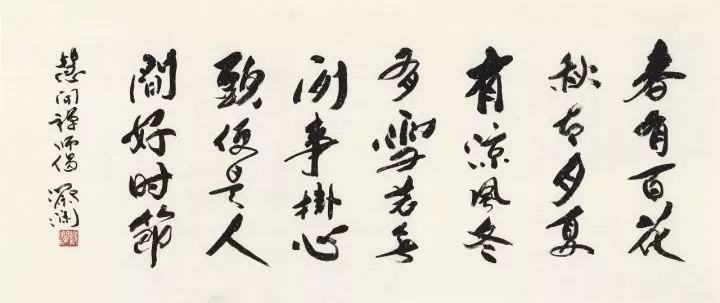 春有百花
秋有月夏
有涼風冬
有雪若無
閑事掛心
頭便是人
間好时節
慧開禪师偈